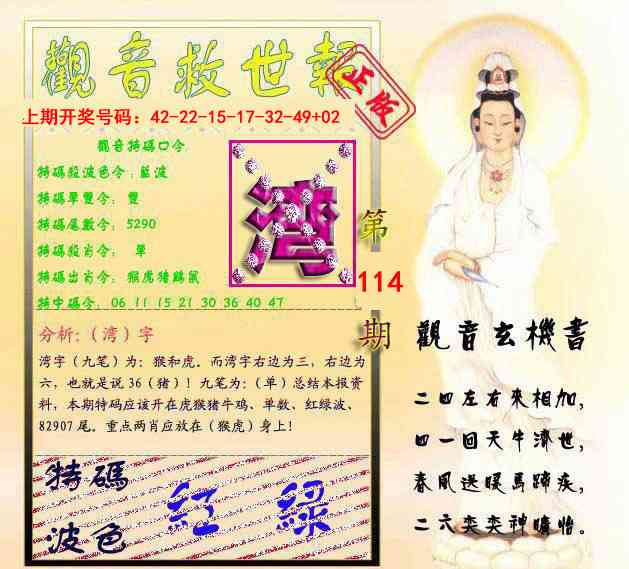 觀音救世報
正版
上期开奖号码：42-22-15-17-32-49+02
觀音特碼口令
特碼殺波色令：藍波
特碼單雙令：雙
特碼尾數令：5290
特碼殺肖令：單
特碼出肖令：猴虎猪鷄鼠
特中碼令：06 11 15 21 30 36 40 47
灣
第
114
期
分析：（湾）字
湾字（九笔）为：猴和虎。而湾字右边为三，右边为
六，也就是说36（猪）！九笔为：（单）总结本报资
料，本期特码应该开在虎猴猪牛鸡、单数、红绿波、
82907尾。重点两肖应放在（猴虎）身上！
特碼
波色
紅 綠
觀音玄機書
二四左右來相加，
四一回天牛濟世，
春風送暖馬蹄疾，
二六奕奕神曠怡。